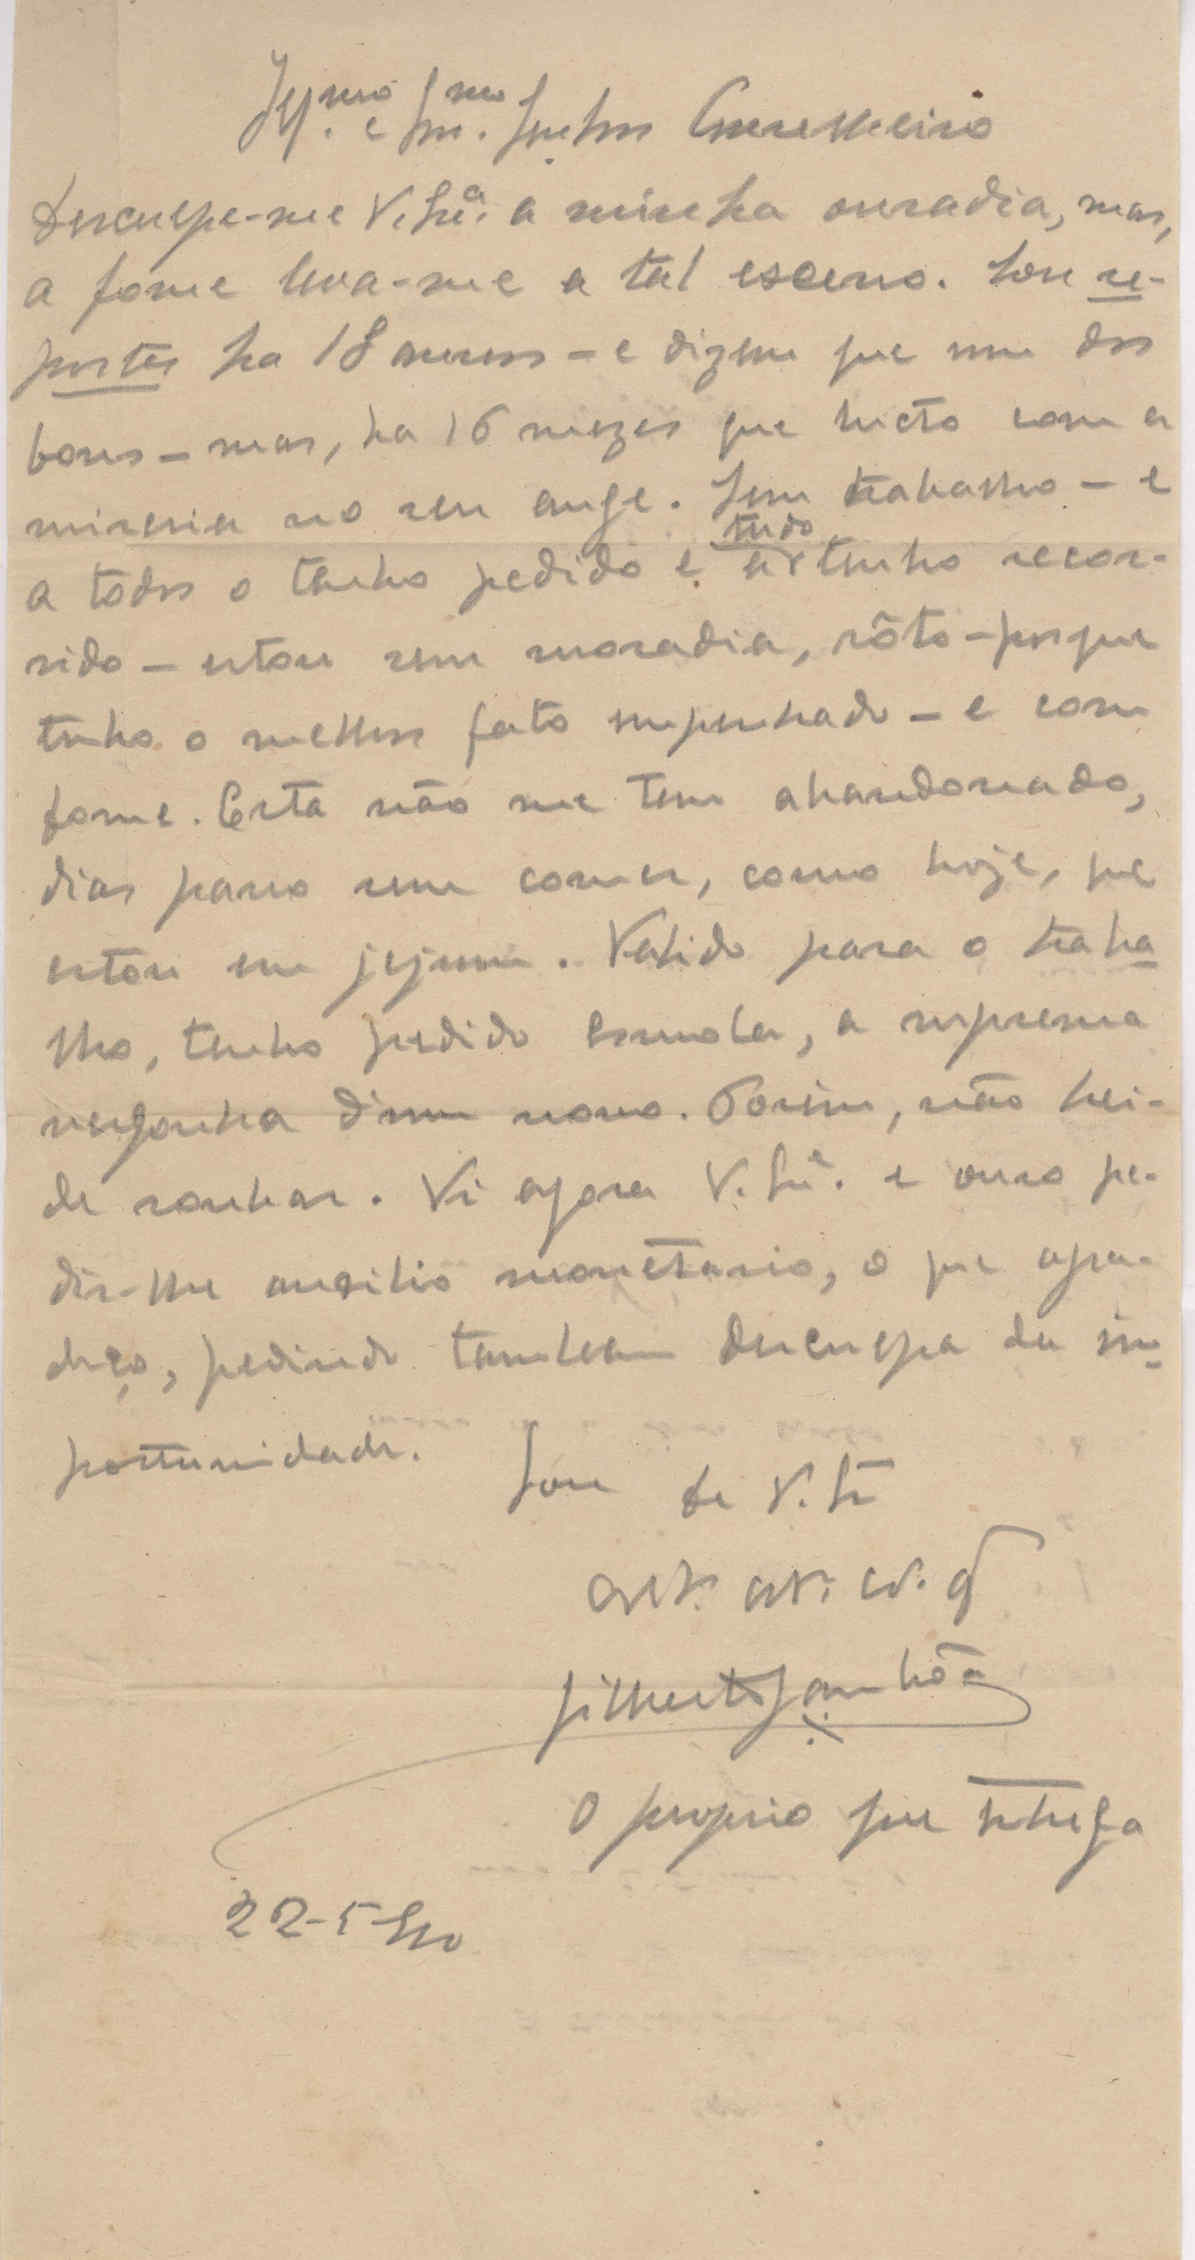 Ill.mo e Sm.mo Senhor Conselheiro
Desculpe-me V. Sr.ª a minha ousadia, mas,
a fome leva-me a tal excesso. Sou re-
porter ha 18 annos - e dizem que um dos
bons - mas, ha 16 mezes que lucto com a
miseria no seu auge. Sem trabalho - e
a todos o tenho pedido e a tudo tenho recor-
rido - estou sem moradia, rôto - porque
tenho o melhor fato empenhado - e com
fome. Esta não me tem abandonado,
dias passo sem comer, como hoje, que
estou em jejum. Valido para o traba-
lho, tenho pedido esmola, a suprema
vergonha d'um novo. Porém, não hei-
de roubar. Vi agora V. Sr.ª e ouso pe-
dir-lhe auxilio monetario, o que agra-
deço, pedindo tambem desculpa da im-
portunidade.
Sou de V. Sr.ª
Gilberto Gambôa
O proprio que entrega
22-5-